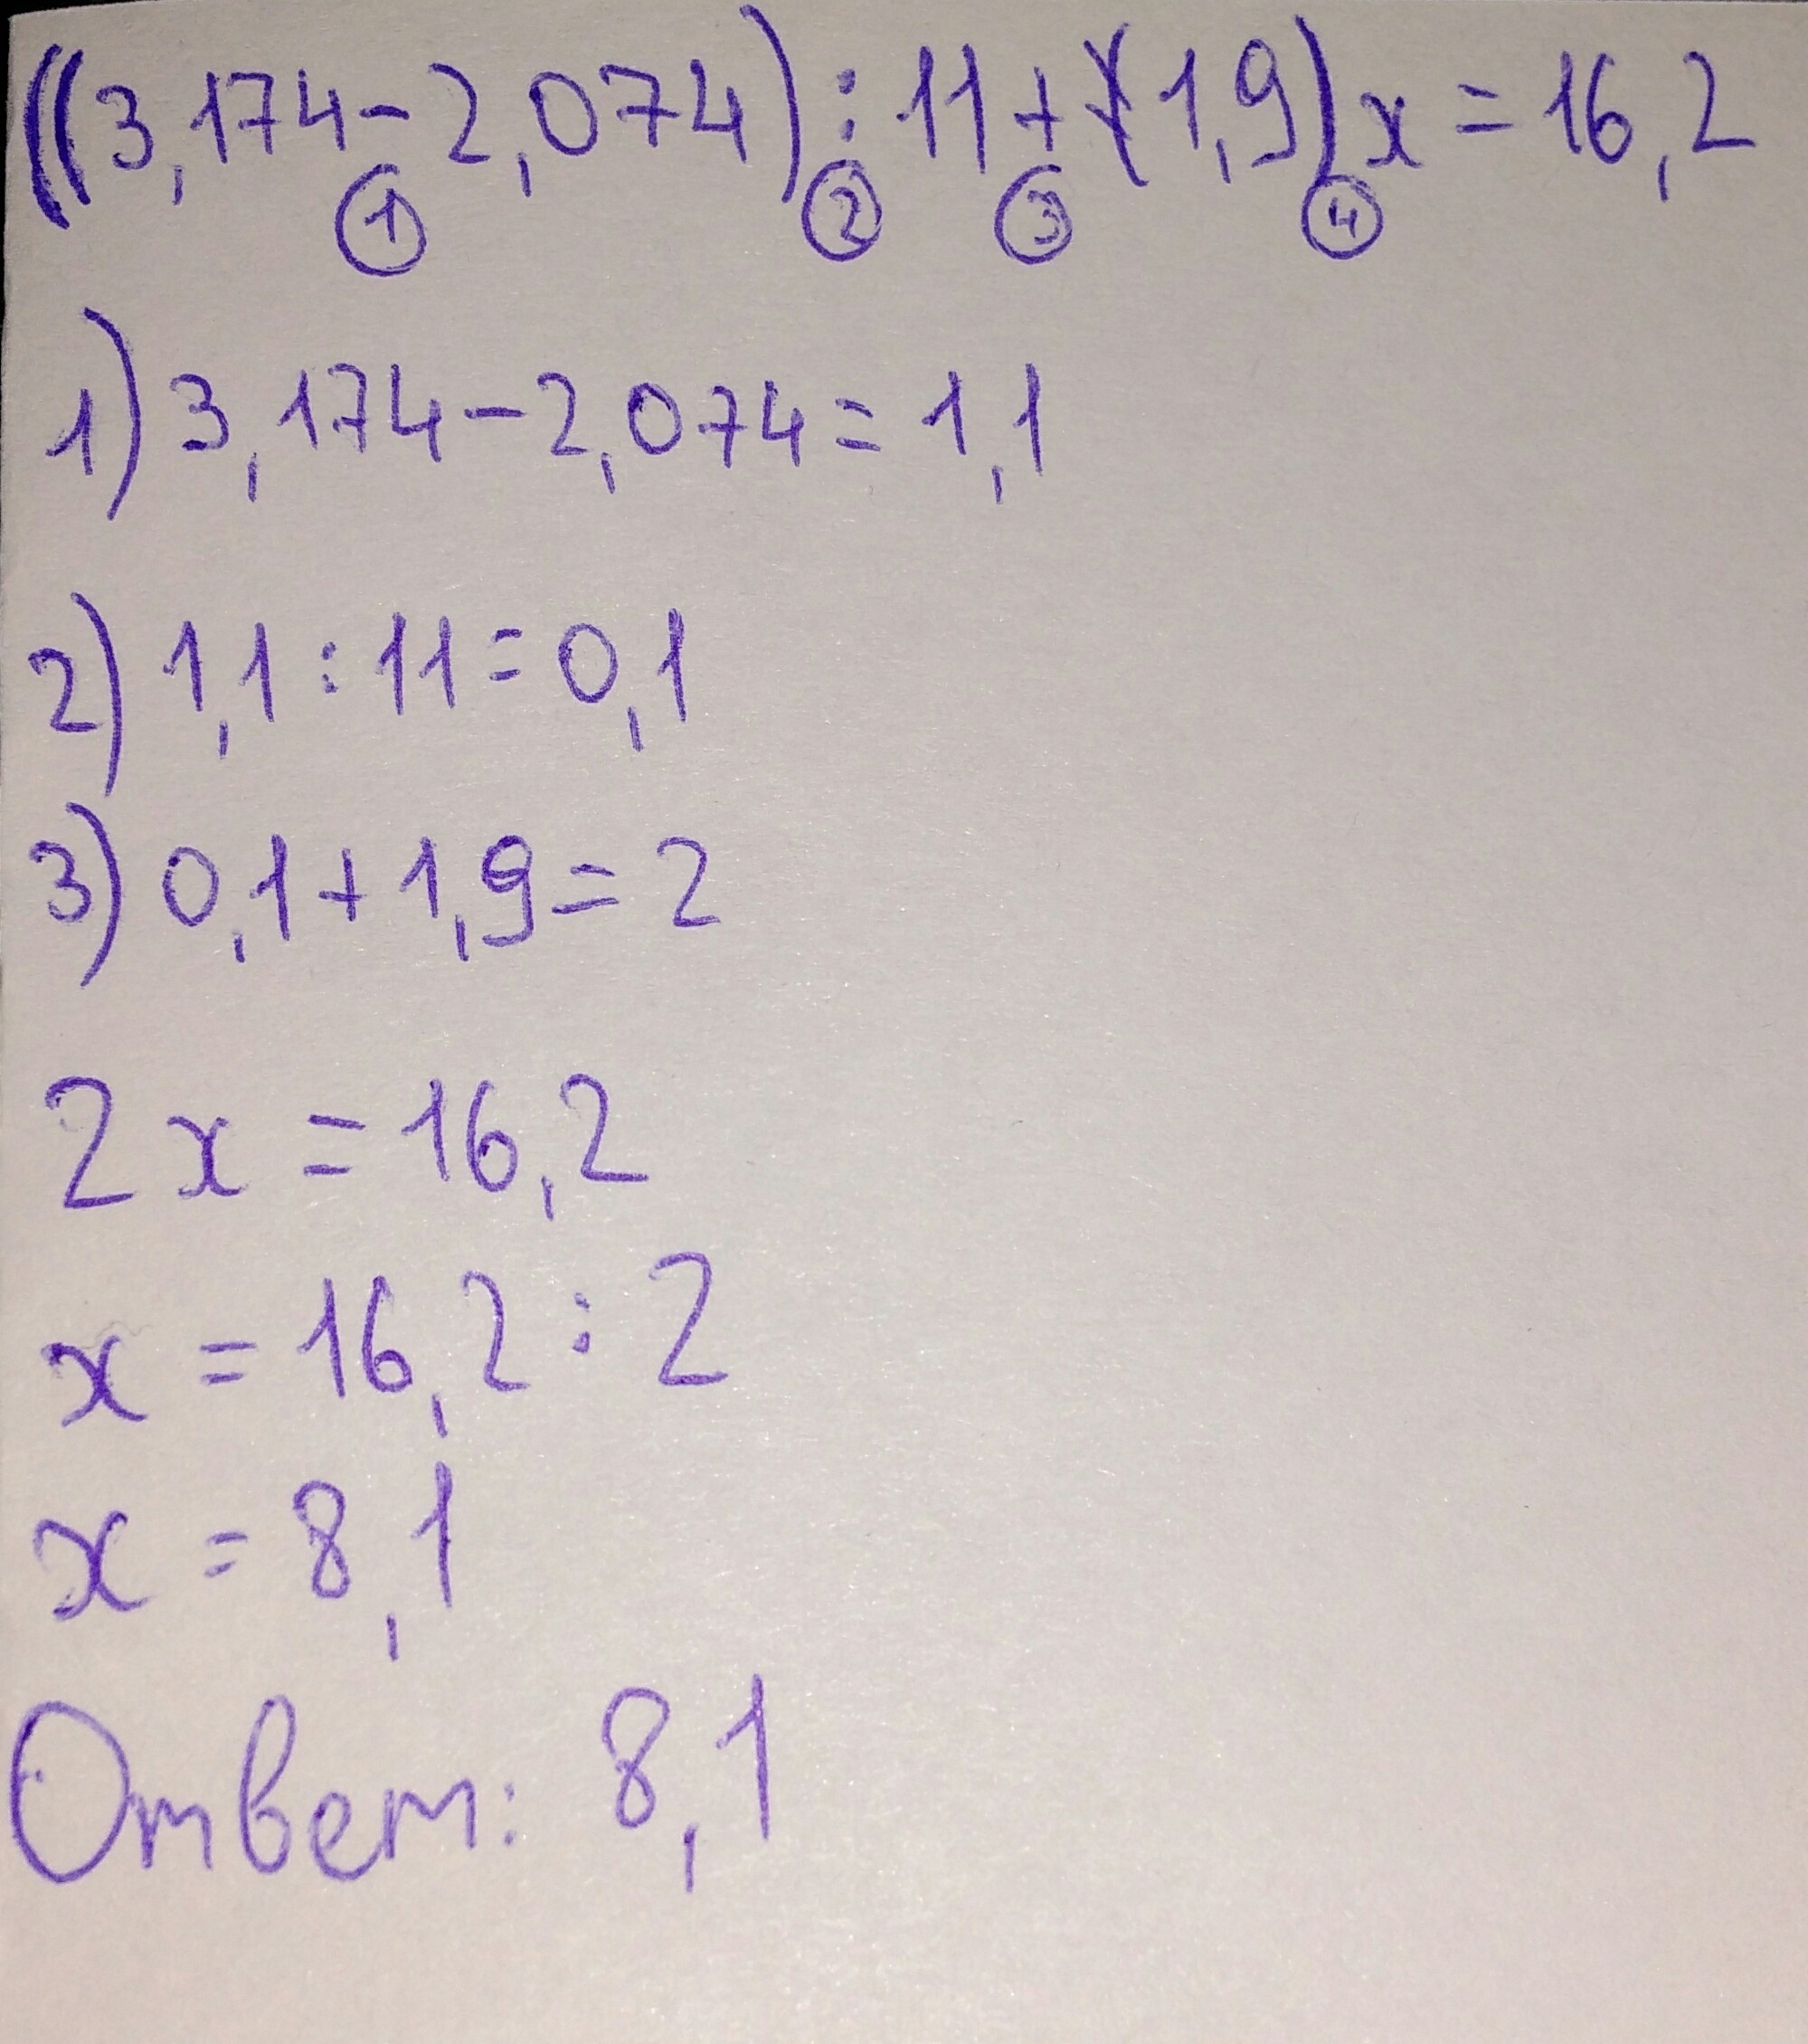 ((3,174-2,074):11+1,9)x=16,2
① ② ③ ④
1) 3,174-2,074=1,1
2) 1,1:11=0,1
3) 0,1+1,9=2
2x=16,2
x=16,2:2
x=8,1
Ответ: 8,1